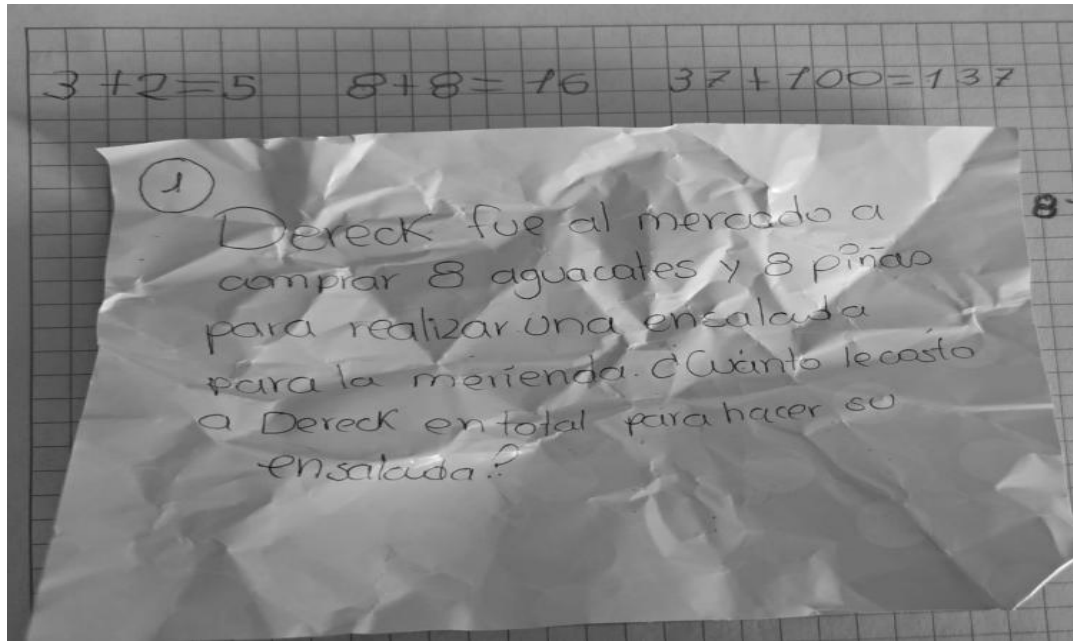 3+2=5 8+8=16 37+100=137
8
1
Dereck fue al mercado a
comprar 8 aguacates y 8 piñas
para realizar una ensalada
para la merienda. ¿Cuánto le costo
a Dereck en total para hacer su
ensalada?